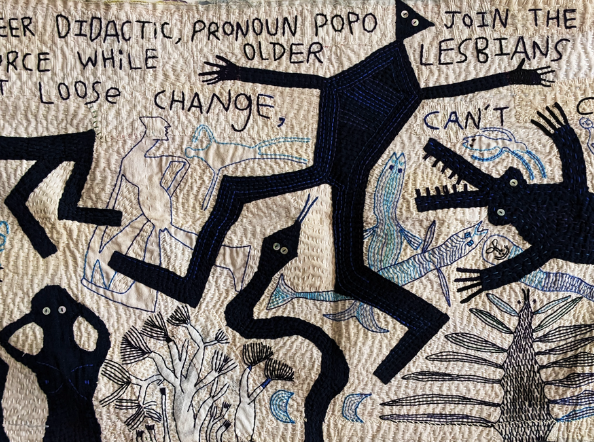 EER DIDACTIC, PRONOUN POPO JOIN THE
ORCE WHILE OLDER LESBIANS
T LOOSE CHANGE, CAN'T